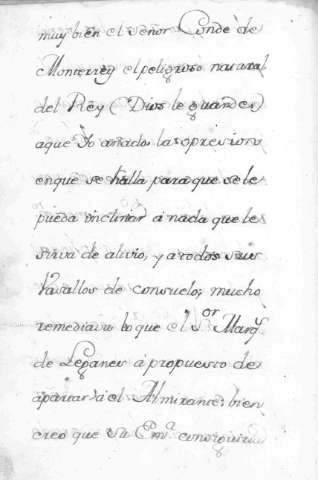 muy bien el señor Conde de
Monterrey el peligroso natural
del Rey (Dios le guarde)
aque Yo añado la opresion
enque se halla para que se le
pueda inclinar á nada que le
sirva de alivio, y a todos sus
Vasallos de consuelo; mucho
remediara lo que el S.or Marq.s
de Leganes á propuesto de
apartar á el Almirante; bien
creo que Su Em.a conseguira